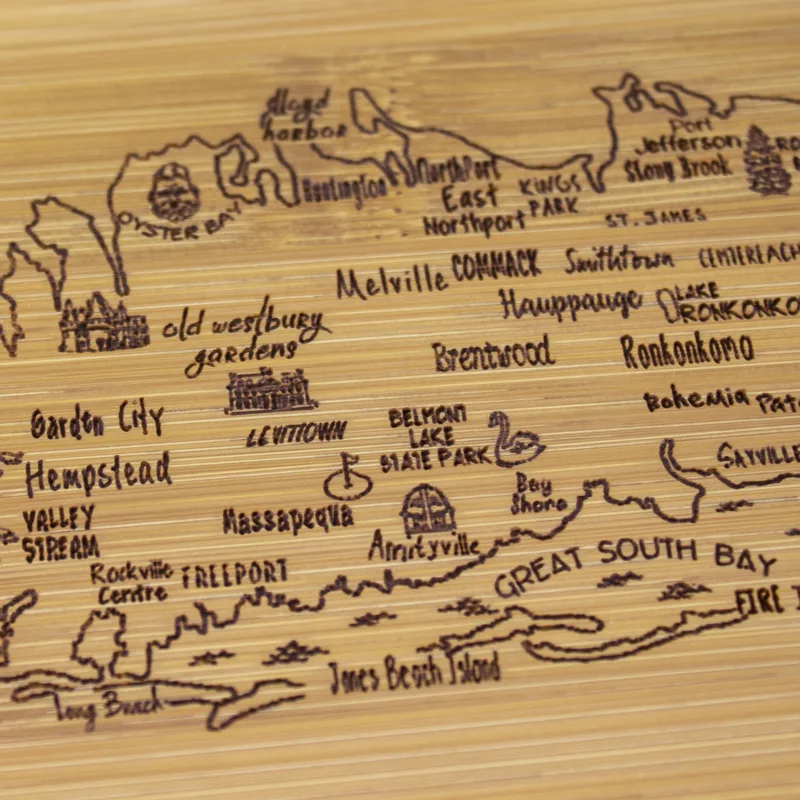 lloyd
harbor
Port
Jefferson
Stony Brook
RO
OYSTER BAY
Huntington
NorthPort
East
Northport
KINGS
PARK
ST. JAMES
Melville
COMMACK
Smithtown
CENTEREACH
Hauppauge
LAKE
RONKONKO
old westbury
gardens
Brentwood
Ronkonkomo
Garden City
LEVITTOWN
BELMONT
LAKE
STATE PARK
Bohemia
Patc
Hempstead
SAYVILLE
VALLEY
STREAM
Massapequa
Bay
Shore
Amityville
Rockville
Centre
FREEPORT
GREAT SOUTH BAY
FIRE I
Jones Beach Island
Long Beach